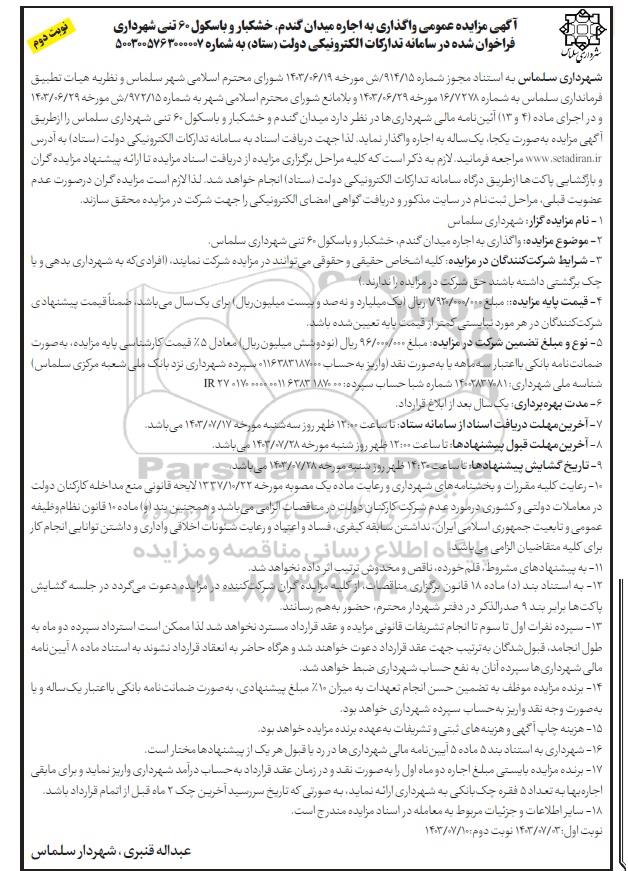 آگهی مزایده عمومی واگذاری به اجاره میدان گندم، خشکبار و باسکول ۶۰ تنی شهرداری
فراخوان شده در سامانه تدارکات الکترونیکی دولت (ستاد) به شماره ۵۰۰۳۰۰۵۷۶۳۰۰۰۰۰۷
نوبت دوم
شهرداری سلماس
شهرداری سلماس به استناد مجوز شماره ۹۱۴/۱۵/ش مورخه ۱۴۰۳/۰۶/۱۹ شورای محترم اسلامی شهر سلماس و نظریه هیات تطبیق
فرمانداری سلماس به شماره ۱۶/۷۲۷۸ مورخه ۱۴۰۳/۰۶/۲۹ و بلامانع شورای محترم اسلامی شهر به شماره ۹۷۲/۱۵/ش مورخه ۱۴۰۳/۰۶/۲۹
و در اجرای ماده (۴ و ۱۳) آئین‌نامه مالی شهرداری‌ها در نظر دارد میدان گندم و خشکبار و باسکول ۶۰ تنی شهرداری سلماس را ازطریق
آگهی مزایده به‌صورت یکجا، یک‌ساله به اجاره واگذار نماید. لذا جهت دریافت اسناد به سامانه تدارکات الکترونیکی دولت (ستاد) به آدرس
www.setadiran.ir مراجعه فرمائید. لازم به ذکر است که کلیه مراحل برگزاری مزایده از دریافت اسناد مزایده تا ارائه پیشنهاد مزایده گران
و بازگشایی پاکت‌ها ازطریق درگاه سامانه تدارکات الکترونیکی دولت (ستاد) انجام خواهد شد. لذا لازم است مزایده گران درصورت عدم
عضویت قبلی، مراحل ثبت‌نام در سایت مذکور و دریافت گواهی امضای الکترونیکی را جهت شرکت در مزایده محقق سازند.
۱- نام مزایده گزار: شهرداری سلماس
۲- موضوع مزایده: واگذاری به اجاره میدان گندم، خشکبار و باسکول ۶۰ تنی شهرداری سلماس.
۳- شرایط شرکت‌کنندگان در مزایده: کلیه اشخاص حقیقی و حقوقی می‌توانند در مزایده شرکت نمایند، (افرادی‌که به شهرداری بدهی و یا
چک برگشتی داشته باشند حق شرکت در مزایده را ندارند.)
۴- قیمت پایه مزایده:: مبلغ ۷۹۲۰/۰۰۰/۰۰۰ ریال (یک‌میلیارد و نه‌صد و بیست میلیون‌ریال) برای یک سال می‌باشد، ضمناً قیمت پیشنهادی
شرکت‌کنندگان در هر مورد نبایستی کمتر از قیمت پایه تعیین‌شده باشد.
۵- نوع و مبلغ تضمین شرکت در مزایده: مبلغ ۹۶/۰۰۰/۰۰۰ ریال (نودوشش میلیون‌ریال) معادل ۵٪ قیمت کارشناسی پایه مزایده، به‌صورت
ضمانت‌نامه بانکی بااعتبار سه‌ماهه یا به‌صورت نقد (واریز به‌حساب ۰۱۱۶۳۸۳۱۸۷۰۰۰ سپرده شهرداری نزد بانک ملی شعبه مرکزی سلماس)
شناسه ملی شهرداری: ۱۴۰۰۲۸۳۷۰۸۱ شماره شبا حساب سپرده: IR ۲۷ ۰۱۷۰ ۰۰۰۰ ۰۰۱۱ ۶۳۸۳ ۱۸۷۰ ۰۰
۶- مدت بهره‌برداری: یک‌سال بعد از ابلاغ قرارداد.
۷- آخرین مهلت دریافت اسناد از سامانه ستاد: تا ساعت ۱۲:۰۰ ظهر روز سه‌شنبه مورخه ۱۴۰۳/۰۷/۱۷ می‌باشد.
۸- آخرین مهلت قبول پیشنهادها: تا ساعت ۱۲:۰۰ ظهر روز شنبه مورخه ۱۴۰۳/۰۷/۲۸ می‌باشد.
۹- تاریخ گشایش پیشنهادها: تا ساعت ۱۴:۳۰ ظهر روز شنبه مورخه ۱۴۰۳/۰۷/۲۸ می‌باشد.
۱۰- رعایت کلیه مقررات و بخشنامه‌های شهرداری و رعایت ماده یک مصوبه مورخه ۱۳۳۷/۱۰/۲۲ لایحه قانونی منع مداخله کارکنان دولت
در معاملات دولتی و کشوری درمورد عدم شرکت کارکنان دولت در مناقصات الزامی می‌باشد و همچنین بند (و) ماده ۱۰ قانون نظام‌وظیفه
عمومی و تابعیت جمهوری اسلامی ایران، نداشتن سابقه کیفری، فساد و اعتیاد و رعایت شئونات اخلاقی واداری و داشتن توانایی انجام کار
برای کلیه متقاضیان الزامی می‌باشد.
۱۱- به پیشنهادهای مشروط، قلم‌خورده، ناقص و مخدوش ترتیب اثر داده نخواهد شد.
۱۲- به استناد بند (د) ماده ۱۸ قانون برگزاری مناقصات، از کلیه مزایده گران شرکت‌کننده در مزایده دعوت می‌گردد در جلسه گشایش
پاکت‌ها برابر بند ۹ صدرالذکر در دفتر شهردار محترم، حضور به‌هم رسانند.
۱۳- سپرده نفرات اول تا سوم تا انجام تشریفات قانونی مزایده و عقد قرارداد مسترد نخواهد شد لذا ممکن است استرداد سپرده دو ماه به
طول انجامد، قبول‌شدگان به‌ترتیب جهت عقد قرارداد دعوت خواهند شد و هرگاه حاضر به انعقاد قرارداد نشوند به استناد ماده ۸ آیین‌نامه
مالی شهرداری‌ها سپرده آنان به نفع حساب شهرداری ضبط خواهد شد.
۱۴- برنده مزایده موظف به تضمین حسن انجام تعهدات به میزان ۱۰٪ مبلغ پیشنهادی، به‌صورت ضمانت‌نامه بانکی بااعتبار یک‌ساله و یا
به‌صورت وجه نقد واریز به‌حساب سپرده شهرداری خواهد بود.
۱۵- هزینه چاپ آگهی و هزینه‌های ثبتی و تشریفات به‌عهده برنده مزایده خواهد بود.
۱۶- شهرداری به استناد بند ۵ ماده ۵ آیین‌نامه مالی شهرداری‌ها در رد یا قبول هر یک از پیشنهادها مختار است.
۱۷- برنده مزایده بایستی مبلغ اجاره دو ماه اول را به‌صورت نقد و در زمان عقد قرارداد به‌حساب درآمد شهرداری واریز نماید و برای مابقی
اجاره‌بها به تعداد ۵ فقره چک‌بانکی به شهرداری ارائه نماید، به صورتی که تاریخ سررسید آخرین چک ۲ ماه قبل از اتمام قرارداد باشد.
۱۸- سایر اطلاعات و جزئیات مربوط به معامله در اسناد مزایده مندرج است.
نوبت اول: ۱۴۰۳/۰۷/۰۳ نوبت دوم: ۱۴۰۳/۰۷/۱۰
عبداله قنبری، شهردار سلماس
ParsNamadData
پایگاه اطلاع رسانی مناقصه و مزایده